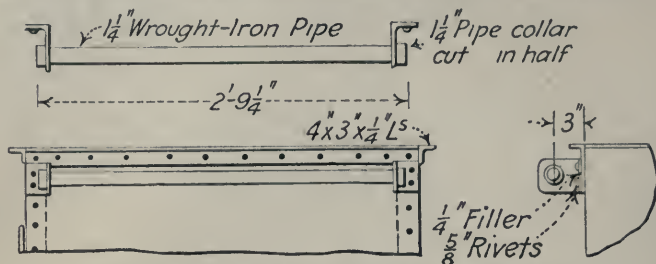 1 1/4" Wrought-Iron Pipe
1 1/4" Pipe collar
cut in half
2'-9 1/4"
4"x3"x1/4" Ls
3"
1/4" Filler
5/8" Rivets